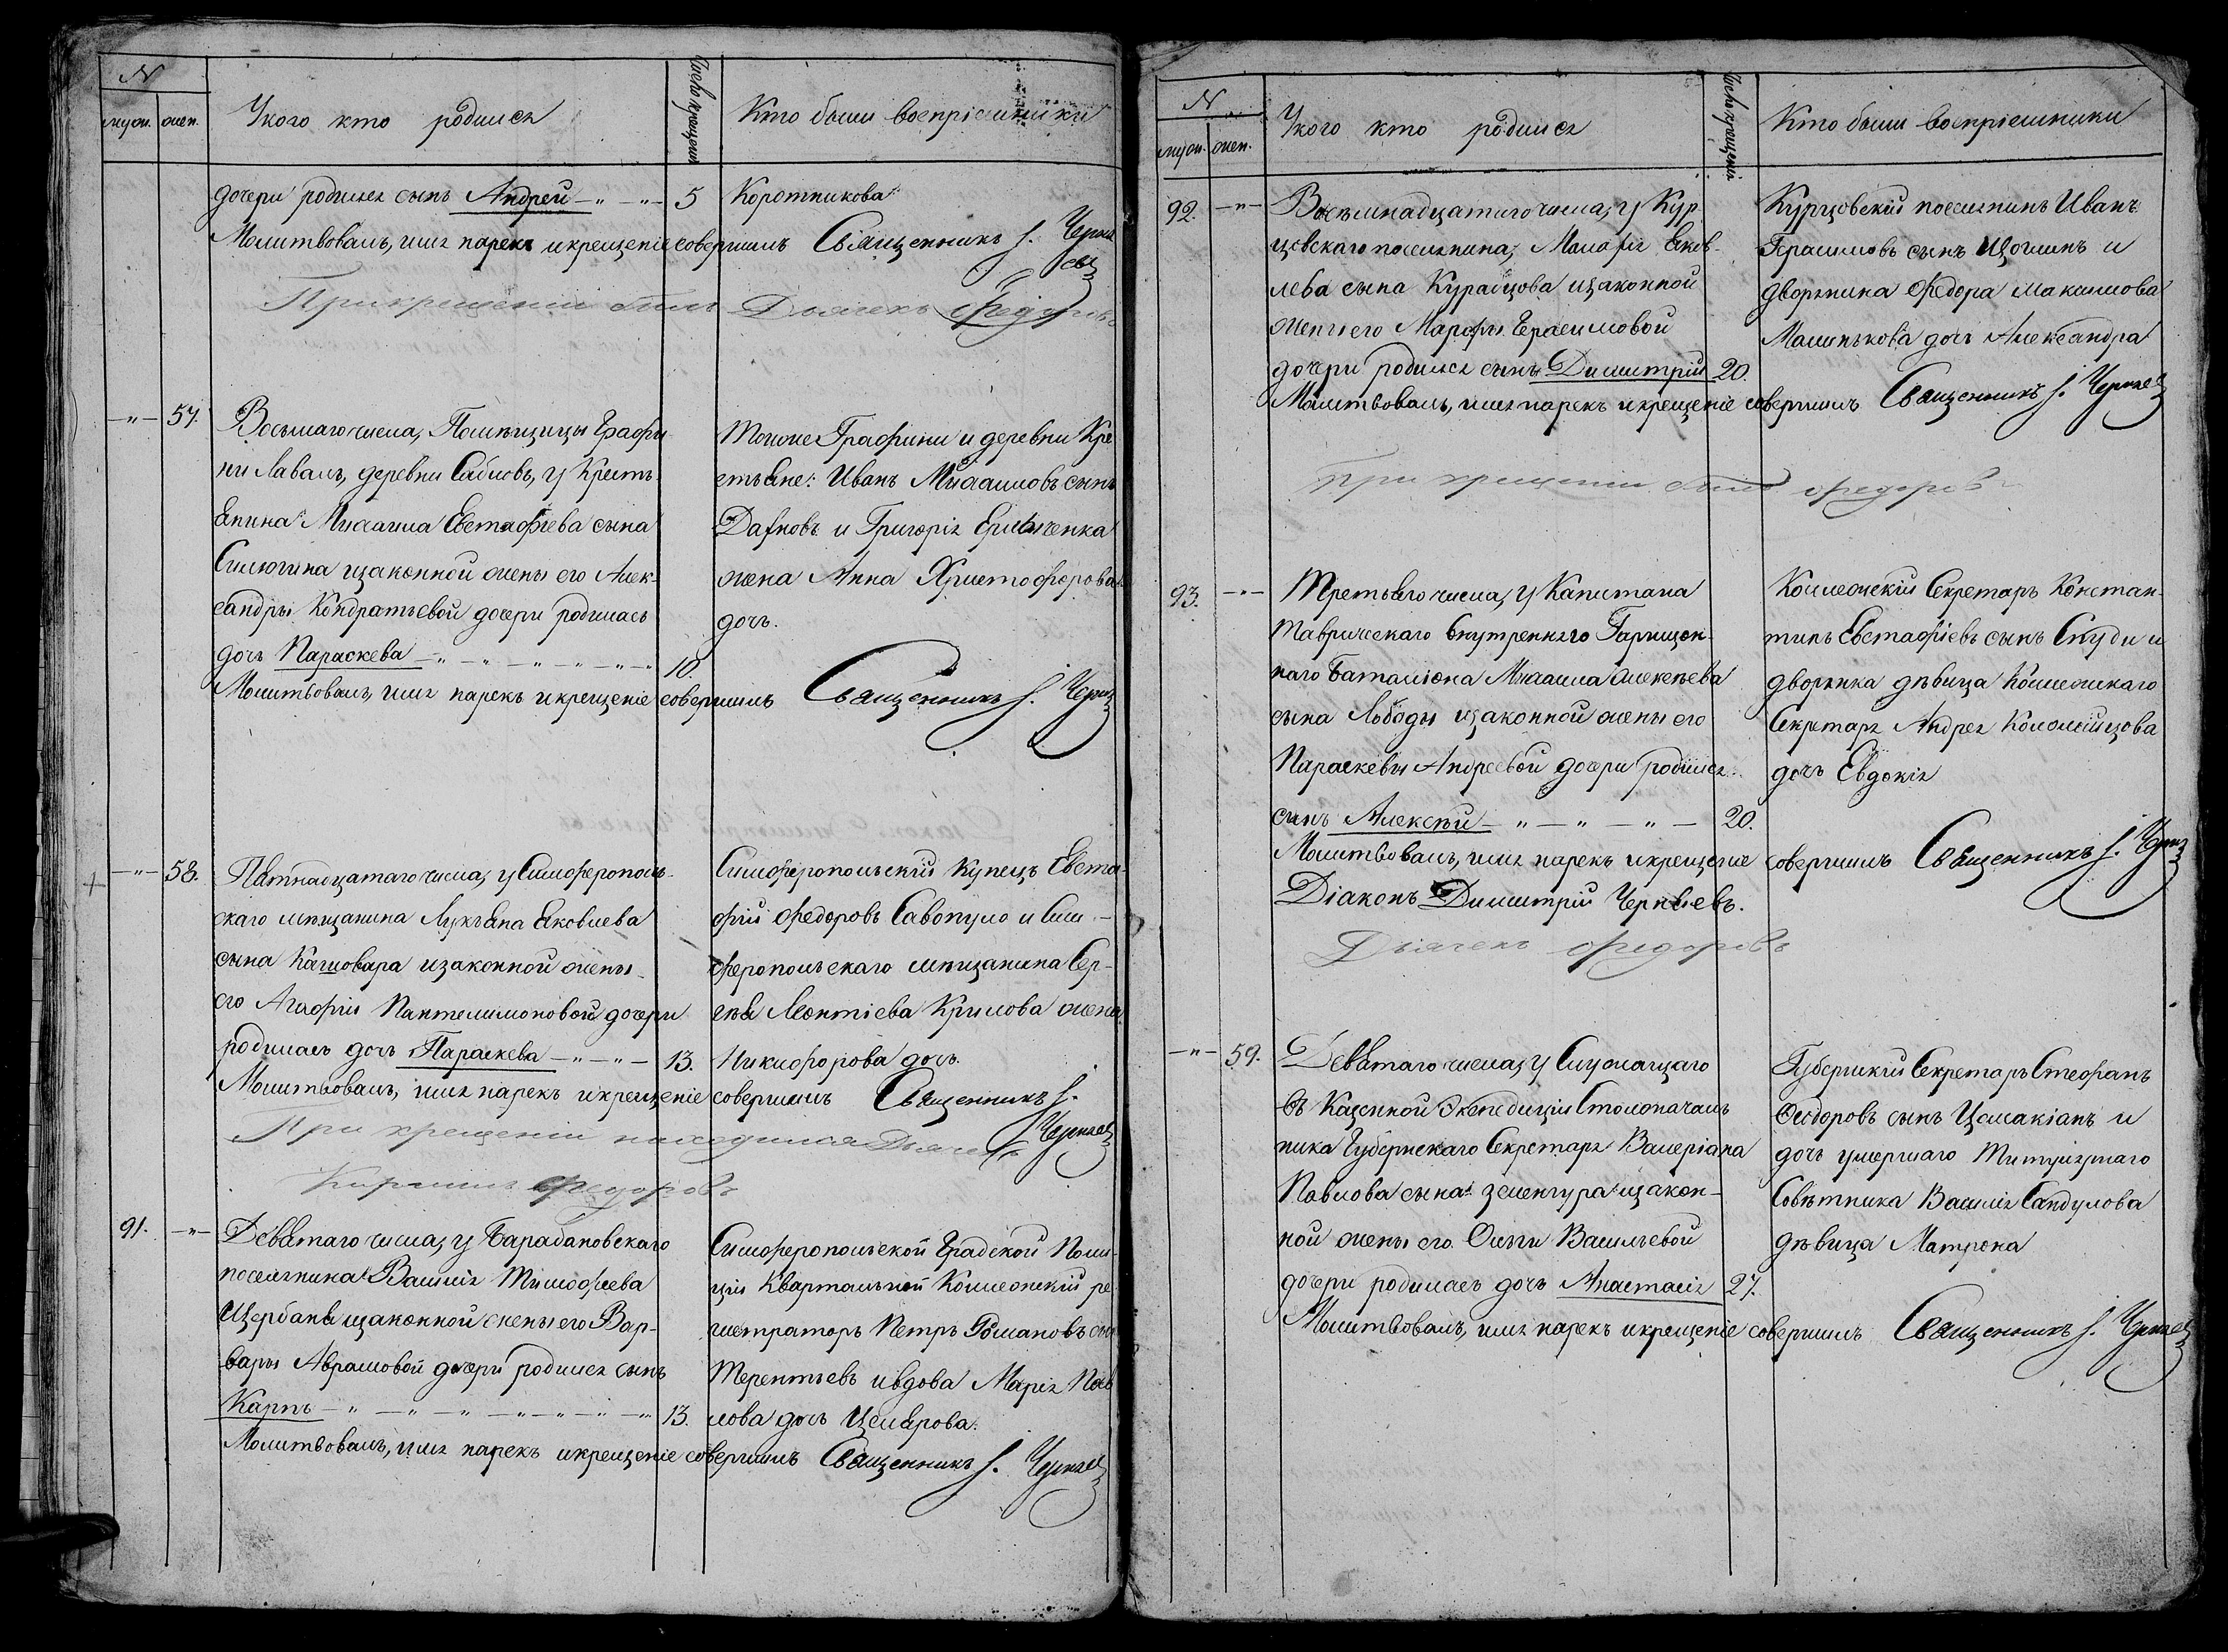 N
муж. жен.
Укого кто родился
Число крещения
Кто были воспріемники
дочери родился сынъ Андрей 5
Коротникова
Молитвовалъ, имя нарекъ и крещеніе совершилъ Священникъ І. Черня
евъ
При крещеніи былъ Дьячекъ Федоровъ
57.
Восьмаго числа, Помѣщицы Графи-
ни Лаваль, деревни Сабловъ, у Кресть-
янина Михаила Евстафіева сына
Смлюгина изаконной жены его Алек-
сандры Кондратьевой дочери родилась
дочь Параскева 10.
Тойже Графини и деревни Кре-
стьяне: Иванъ Михаиловъ сынъ
и Григорія
жена Анна Христофорова
дочь.
Молитвовалъ, имя нарекъ и крещеніе совершилъ Священникъ І. Черняевъ
58.
Пятнадцатаго числа, у Симферополь-
скаго мѣщанина Лукьяна Яковлева
сына Кашовара изаконной жены
его Агафіи Пантелимоновой дочери
родилась дочь Параскева 13.
Симферопольскій Купецъ Евста-
фій Федоровъ Савопуло и Сим-
феропольскаго мѣщанина Сер-
гѣя Леонтіева Крилова жена
Никифорова дочь.
Молитвовалъ, имя нарекъ и крещеніе совершилъ Священникъ І.
Черняевъ
При крещеніи находился Дьячекъ
Федоровъ
91.
Девятаго числа, у Барабановскаго
поселянина Василія Тимофеева
Щербаня изаконной жены его Вар-
вары Аврамовой дочери родился сынъ
Карпъ 13.
Симферопольской Градской Поли-
ціи Квартальной Колежскій ре-
гистраторъ Петръ Романовъ сынъ
Терентьевъ и вдова Марія Пав-
лова дочь Цемярова.
Молитвовалъ, имя нарекъ и крещеніе совершилъ Священникъ І. Черняевъ
N
муж. жен.
Укого кто родился
Число крещенія
Кто были воспріемники
92.
Восьмнадцатаго числа, у Кур-
цовскаго поселянина, Яков-
лева сына Курабцова изаконной
жены его Марфы Герасимовой
дочери родился сынъ Димитрій 20.
Курцовскій поселянинъ Иванъ
Герасимовъ сынъ и
дворянина Федора Максимова
Малинькова дочь Александра
Молитвовалъ, имя нарекъ и крещеніе совершилъ Священникъ І. Черняевъ
При крещеніи былъ Федоровъ
93.
Третьяго числа, у Капитана
Таврическаго Внутренняго Гарнизон-
наго Баталіона Михаила Алексѣева
сына Лободы изаконной жены его
Параскевы Андреевой дочери родился
сынъ Алексѣй 20.
Колежскій Секретарь Констан-
тинъ Евстафіевъ сынъ Спуди и
дворянка дѣвица Колежскаго
Секретаря Андрея Коломійцова
дочь Евдокія
Молитвовалъ, имя нарекъ и крещеніе совершилъ Священникъ І. Черняевъ
Діаконъ Димитрій Чернявевъ.
Дьячекъ Федоровъ
59.
Девятаго числа, у Служащаго
въ Казенной Экспедиціи Столоначаль-
ника Губернскаго Секретаря Валеріана
Павлова сына Зеленгура изакон-
ной жены его Ольги Васильевой
дочери родилась дочь Анастасія 27.
Губернскій Секретарь Стефанъ
Сидоровъ сынъ Цомакіанъ и
дочь умершаго Титулярнаго
Совѣтника Василія Сандулова
дѣвица Матрона
Молитвовалъ, имя нарекъ и крещеніе совершилъ Священникъ І. Черняевъ